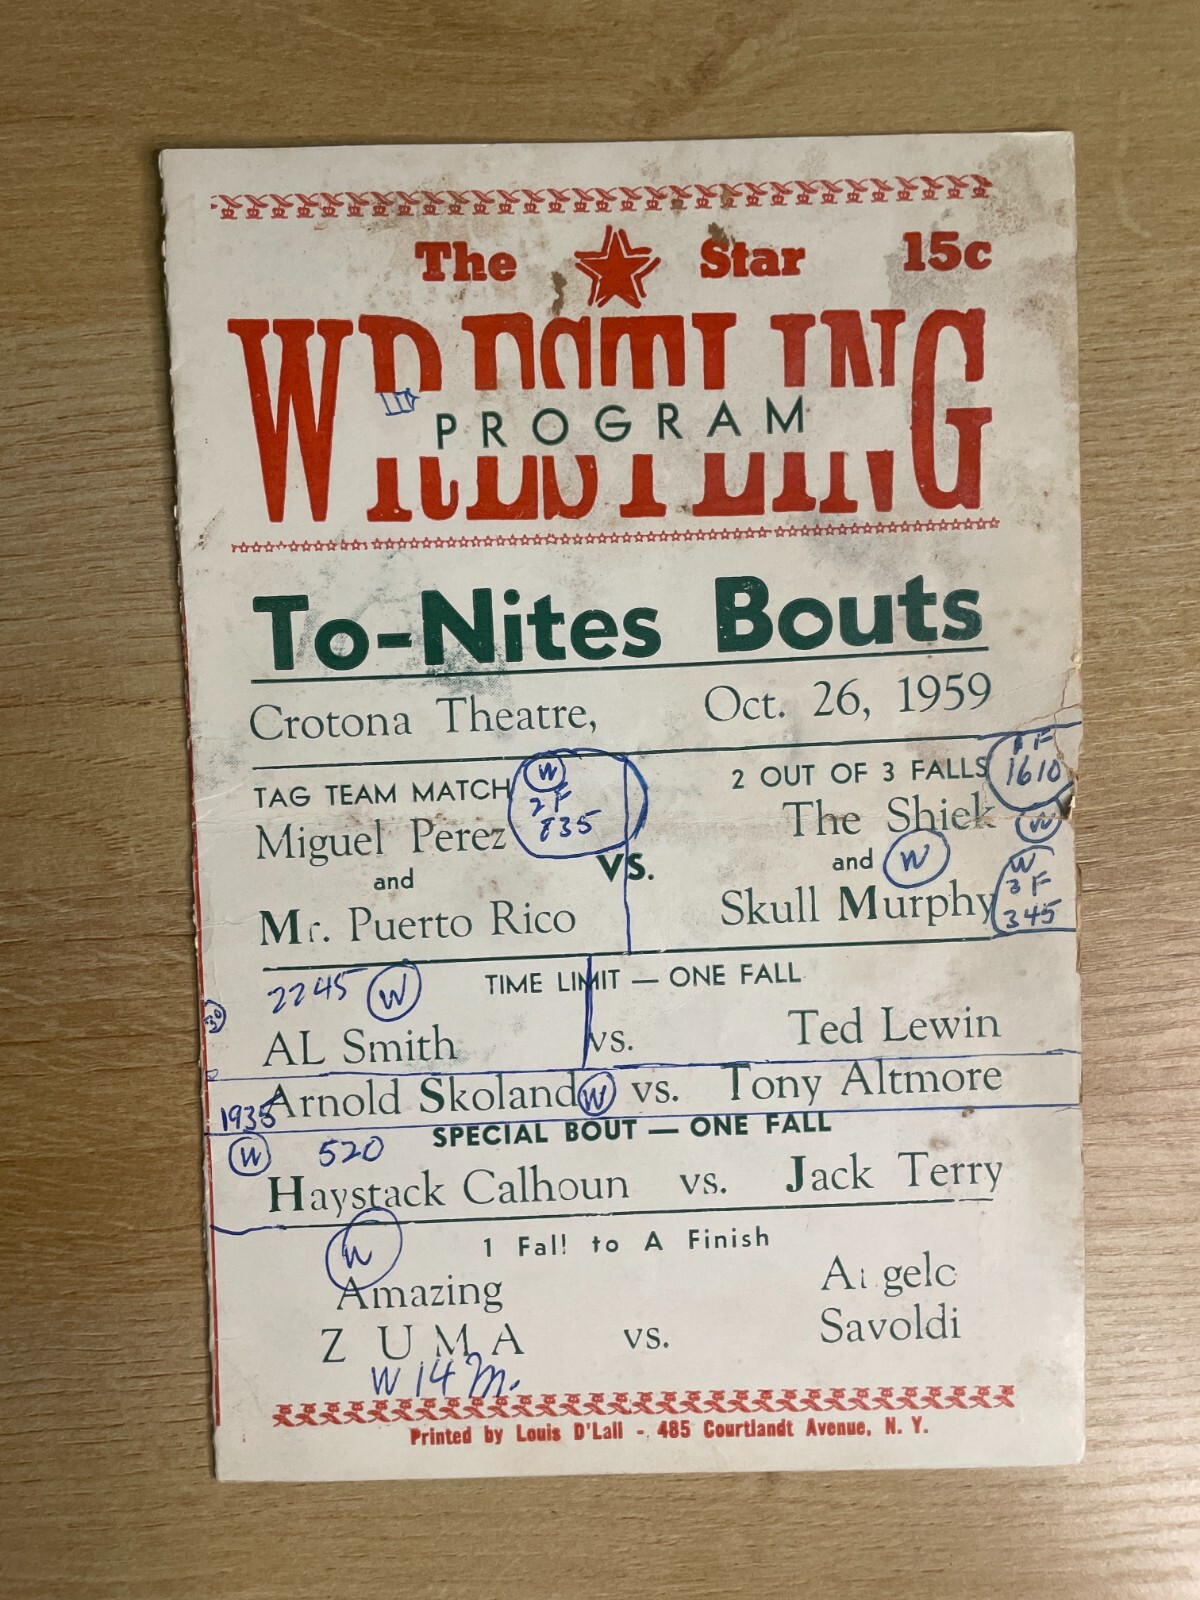 The Star 15c
WRESTLING
PROGRAM
To-Nites Bouts
Crotona Theatre, Oct. 26, 1959
TAG TEAM MATCH
W
2 F
835
Miguel Perez
and
Mr. Puerto Rico
VS.
2 OUT OF 3 FALLS
1 F
1610
The Shiek W
and W
Skull Murphy
W
3 F
345
2245 W TIME LIMIT — ONE FALL
30
AL Smith vs. Ted Lewin
Arnold Skoland W vs. Tony Altmore
1935
W 520 SPECIAL BOUT — ONE FALL
Haystack Calhoun vs. Jack Terry
W
1 Fall to A Finish
Amazing
ZUMA
vs.
Angelo
Savoldi
W 14 M.
Printed by Louis D'Lall - 485 Courtlandt Avenue, N. Y.